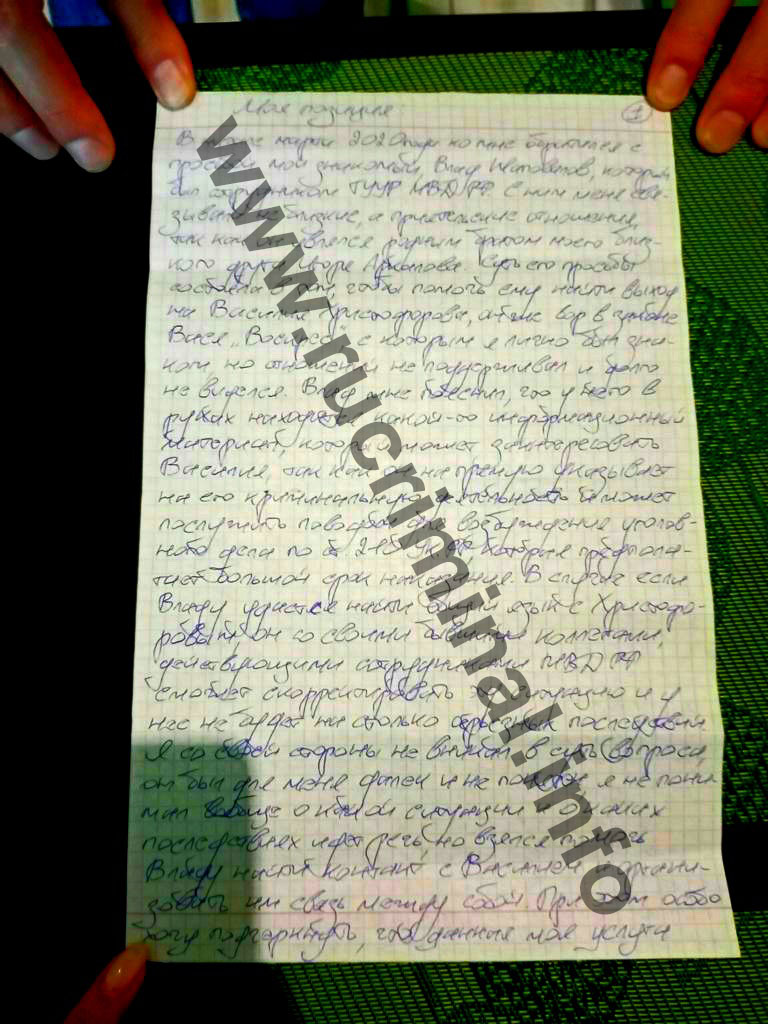 Моя позиция: 1
В марте 2020 года ко мне обратился с
просьбой мой знакомый, Влад, который
был сотрудником ГУУР МВД РФ. С ним меня свя-
зывали не близкие, а приятельские отношения,
так как он являлся братом моего близ-
кого друга. Суть его просьбы
состояла в том, чтобы помочь ему найти выход
на Василия Христофорова, вор в законе
Вася „Воскрес“, с которым я лично был зна-
ком, но отношений не поддерживал и долго
не виделся. Влад мне пояснил, что у него в
руках находится какой-то информационный
материал, который может заинтересовать
Василия, так как он на прямую указывает
на его криминальную деятельность и может
послужить поводом для возбуждения уголов-
ного дела по ст. 210 УК РФ которая предпола-
гает большой срок наказания. В случае если
Владу удастся найти общий язык с Христофо-
ровым он со своими бывшими коллегами,
действующими сотрудниками МВД РФ
сможет скорректировать эту ситуацию и у
нас не будет на столько серьезных последствий.
Я со своей стороны не вникал в суть вопроса,
он был для меня далек и не понятен я не пони-
мал вообще о какой ситуации и о каких
последствиях идет речь, но взялся помочь
Владу найти контакт с Василием и органи-
зовать им связь между собой. При этом особо
хочу подчеркнуть, что данные мои услуги
www.rucriminal.info